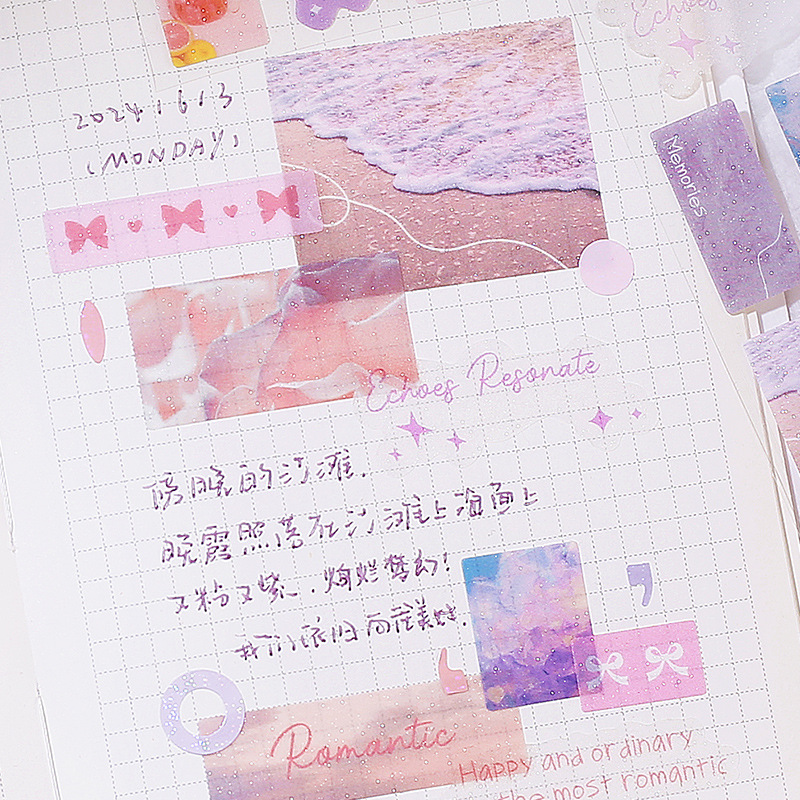 Echoes
2024/6/3
(MONDAY)
Memories
Echoes Resonate
傍晚的沙滩.
晚霞照落在沙滩上海面上
又粉又紫.绚烂梦幻!
我们依旧向往美好.
Romantic
Happy and ordinary
the most romantic